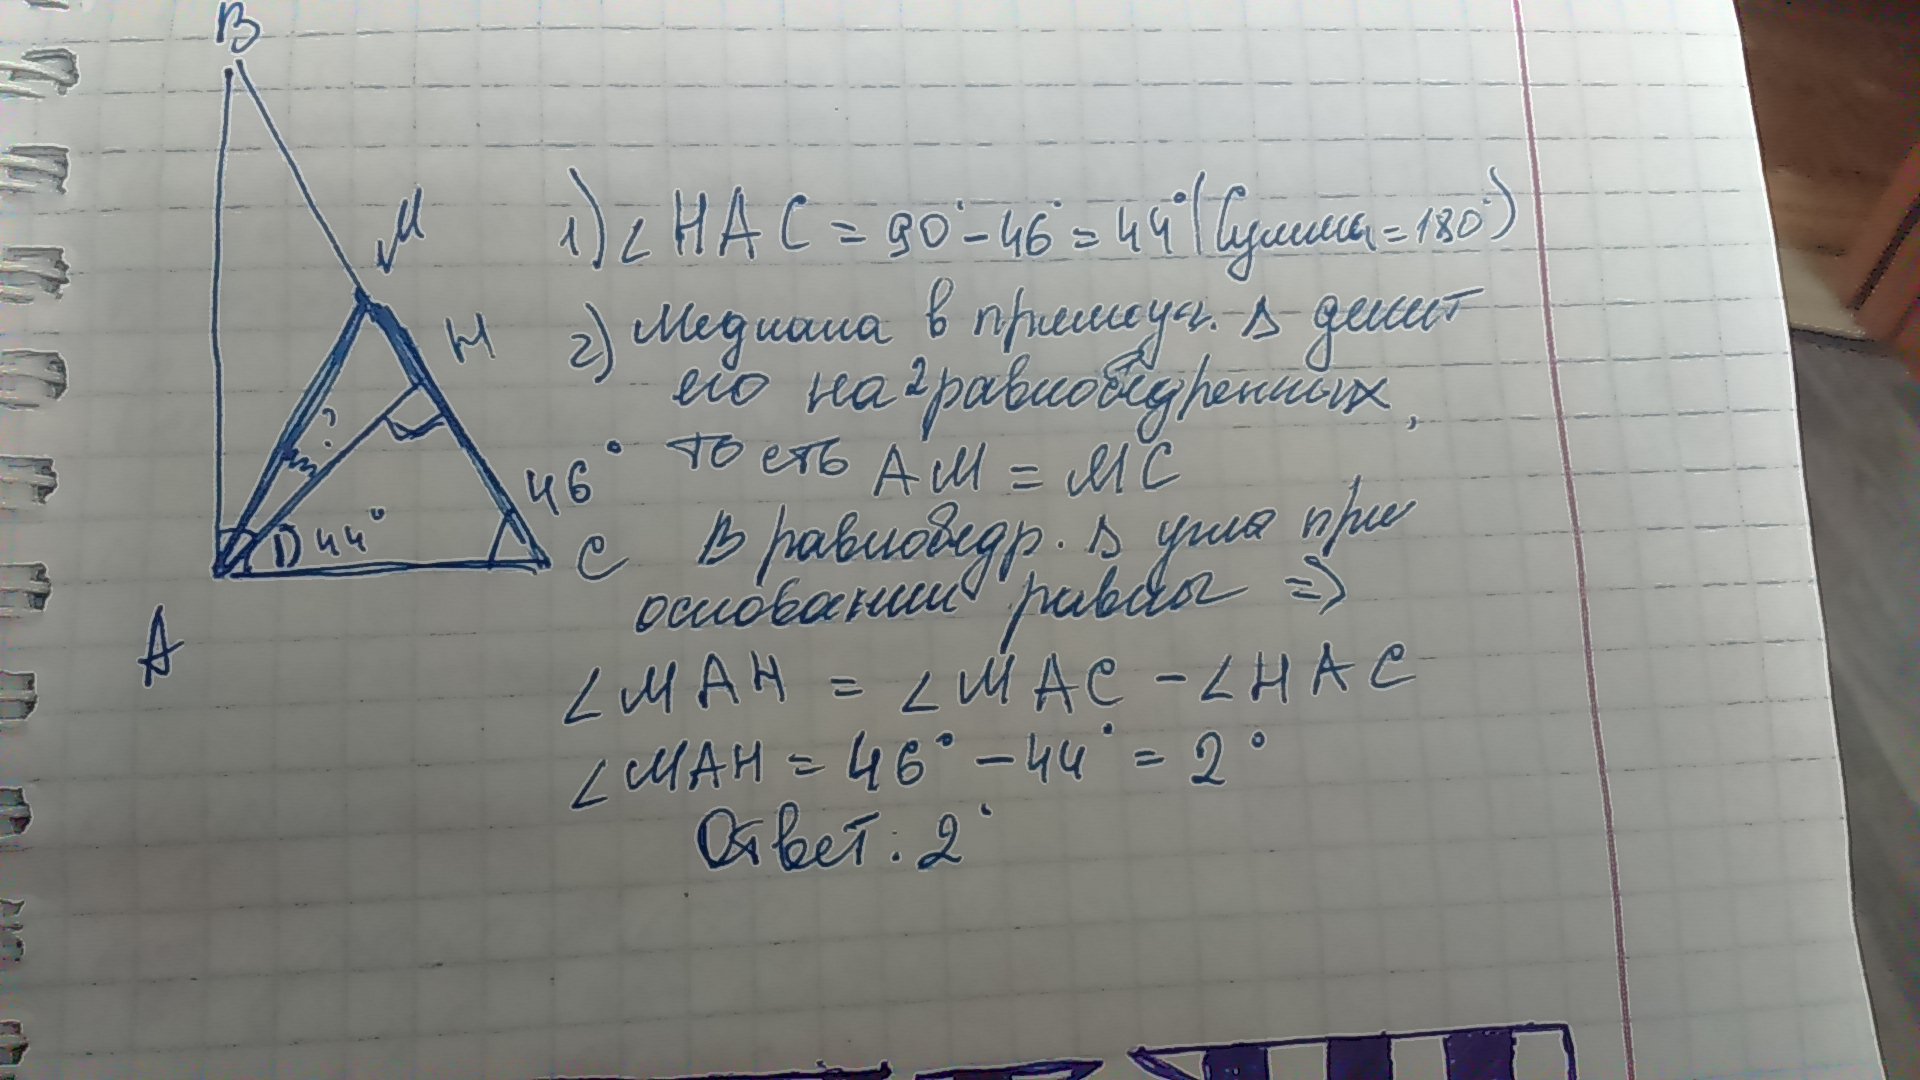 В
М
Н
?
46°
44°
С
А
1) ∠HAC = 90° - 46° = 44° (Сумма = 180°)
2) Медиана в прямоуг. Δ делит
его на 2 равнобедренных,
то есть AM = MC
В равнобедр. Δ углы при
основании равны =>
∠MAH = ∠MAC - ∠HAC
∠MAH = 46° - 44° = 2°
Ответ: 2°